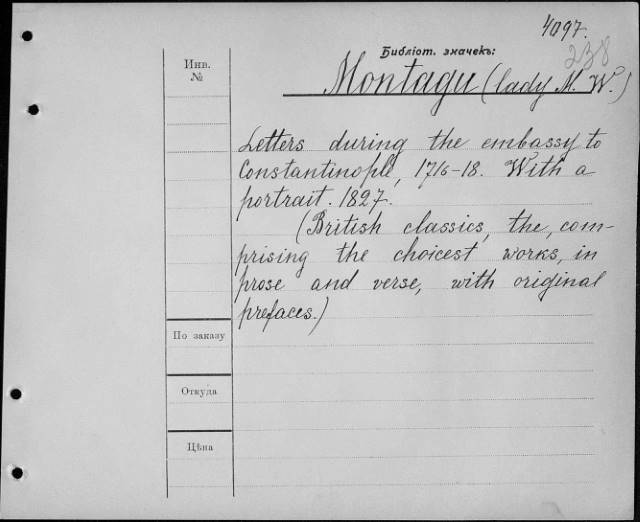 4097.
238
Библіот. значекъ:
Инв.
№
Montagu (lady M. W.)
Letters during the embassy to
Constantinople, 1716-18. With a
portrait. 1827.
(British classics, the, com-
prising the choicest works, in
prose and verse, with original
prefaces.)
По заказу
Откуда
Цѣна